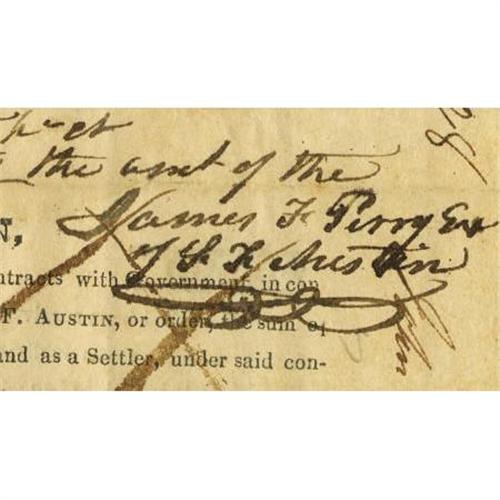 the asset of the
James F Perry Exr
of S F Austin
N,
ntracts with Government, in con
F. AUSTIN, or order, the sum of
and as a Settler, under said con-